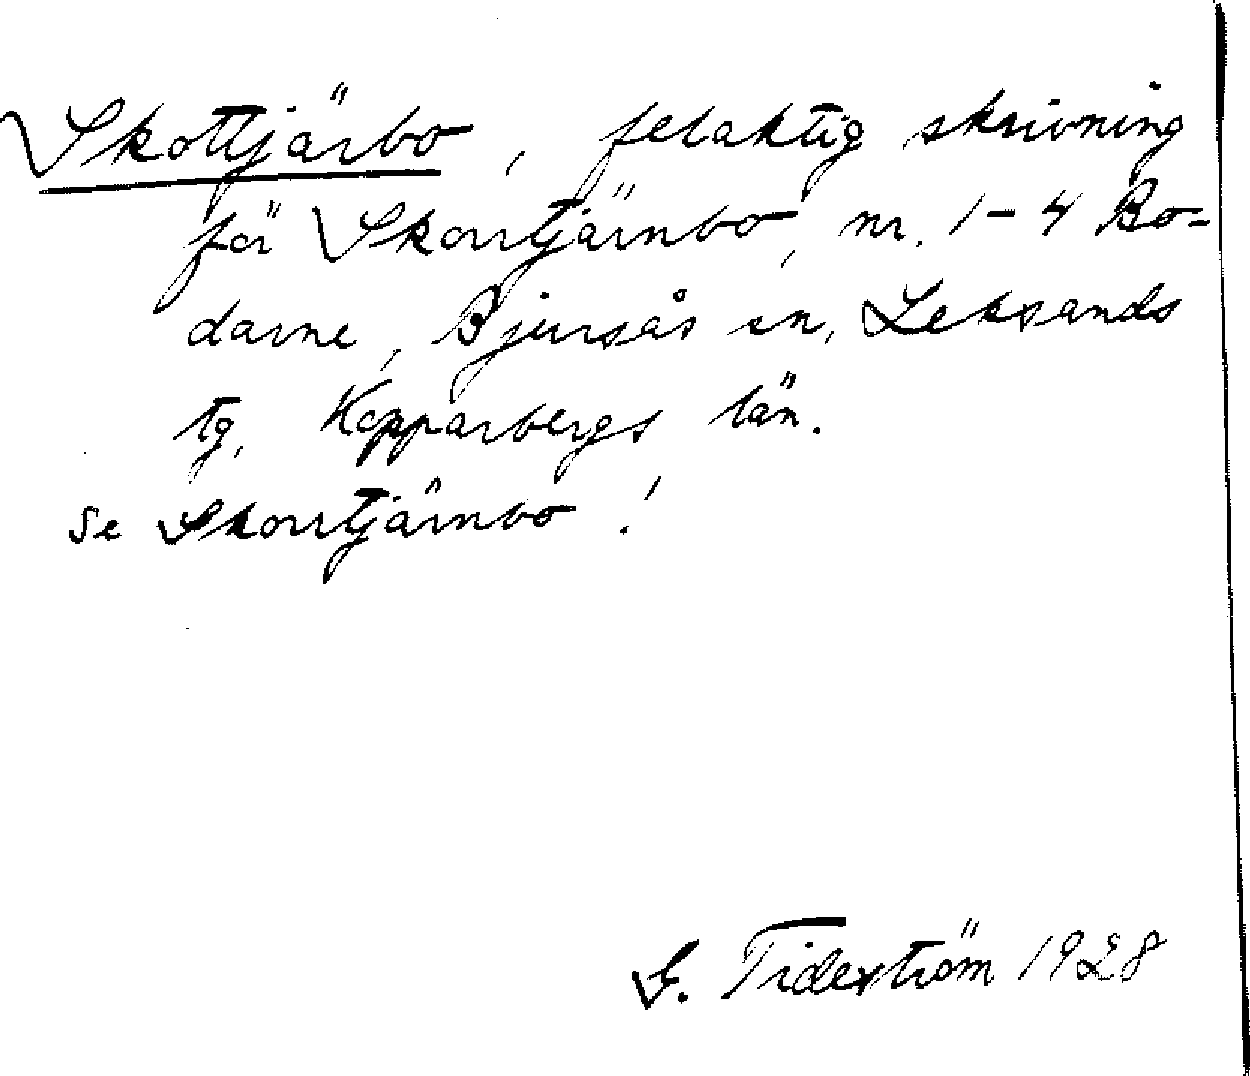 Skottjärbo, felaktig skrivning
för Skorrtjärnbo, nr. 1-4 Bo-
darne, Bjursås sn, Leksands
tg, Kopparbergs län.
se Skorrtjärnbo!
G. Tideström 1928